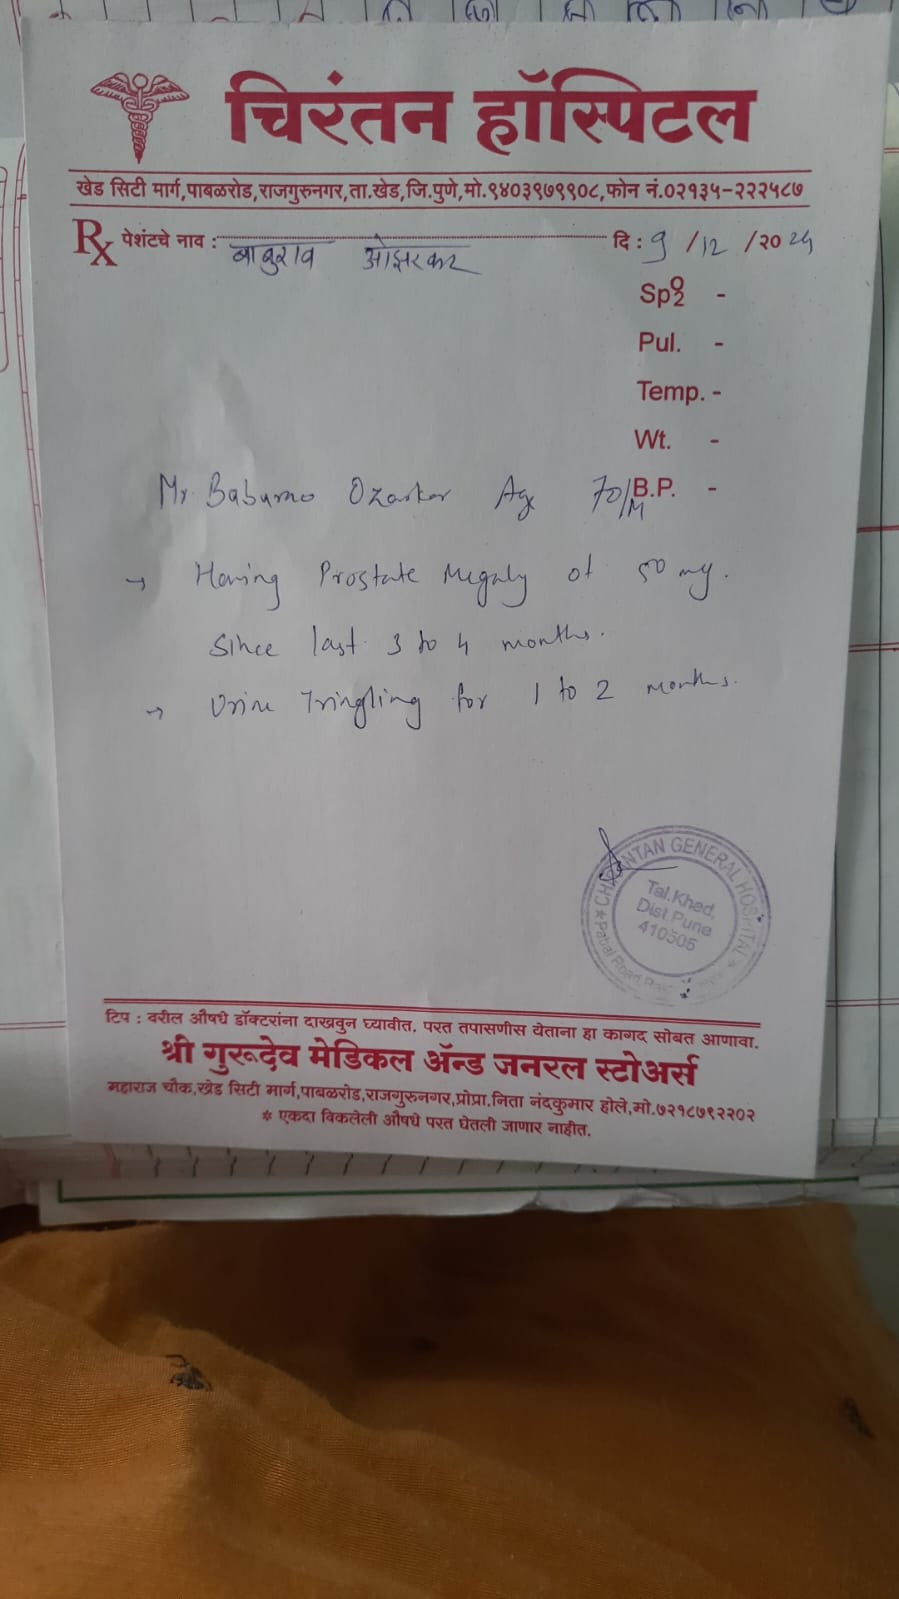 चिरंतन हॉस्पिटल
खेड सिटी मार्ग,पाबळरोड,राजगुरुनगर,ता.खेड,जि.पुणे,मो.९४०३९७९९०८,फोन नं.०२१३५-२२२५८७
Rx पेशंटचे नाव : बाबुराव ओझरकर दि : 9 /12 /२० 24
Spo2 -
Pul. -
Temp. -
Wt. -
B.P. -
Mr. Baburao Ozarkar Age 70/M
→ Having Prostate Megaly of 50 mg.
Since last 3 to 4 months.
→ Urine Tringling for 1 to 2 months.
CHIRANTAN GENERAL HOSPITAL
Tal.Khed,
Dist.Pune
410505
Pabal Road
टिप : वरील औषधे डॉक्टरांना दाखवुन घ्यावीत. परत तपासणीस येताना हा कागद सोबत आणावा.
श्री गुरूदेव मेडिकल ॲन्ड जनरल स्टोअर्स
महाराज चौक,खेड सिटी मार्ग,पाबळरोड,राजगुरुनगर,प्रोप्रा.निता नंदकुमार होले,मो.७२१८७९२२०२
* एकदा विकलेली औषधे परत घेतली जाणार नाहीत.